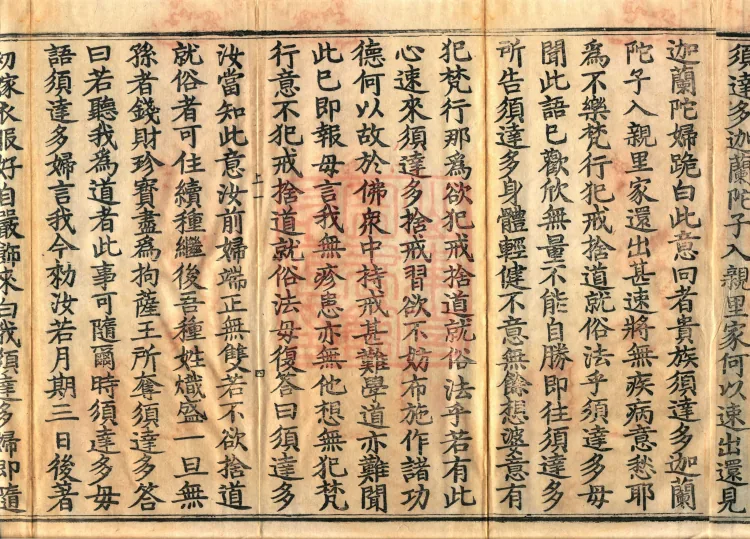 須達多迦蘭陀子入親里家何以速出還見
迦蘭陀婦跪白此意曰者貴族須達多迦蘭
陀子入親里家還出甚速將無疾病意愁耶
為不樂梵行犯戒捨道就俗法乎須達多母
聞此語已歡欣無量不能自勝即往須達多
所告須達多身體輕健不意無餘想婆意有
犯梵行那為欲犯戒捨道就俗法乎若有此
心速來須達多捨戒習欲不妨布施作諸功
德何以故於佛衆中持戒甚難學道亦難聞
此已即報母言我無疹患亦無他想無犯梵
行意不犯戒捨道就俗法母復答曰須達多
上一 四
汝當知此意汝前婦端正無雙若不欲捨道
就俗者可住續種繼後吾種姓熾盛一旦無
孫者錢財珍寶盡為拘薩王所奪須達多答
曰若聽我為道者此事可隨爾時須達多母
語須達多婦言我今勑汝若月期三日後著
初嫁衣服好自嚴飾來白我須達多婦即隨